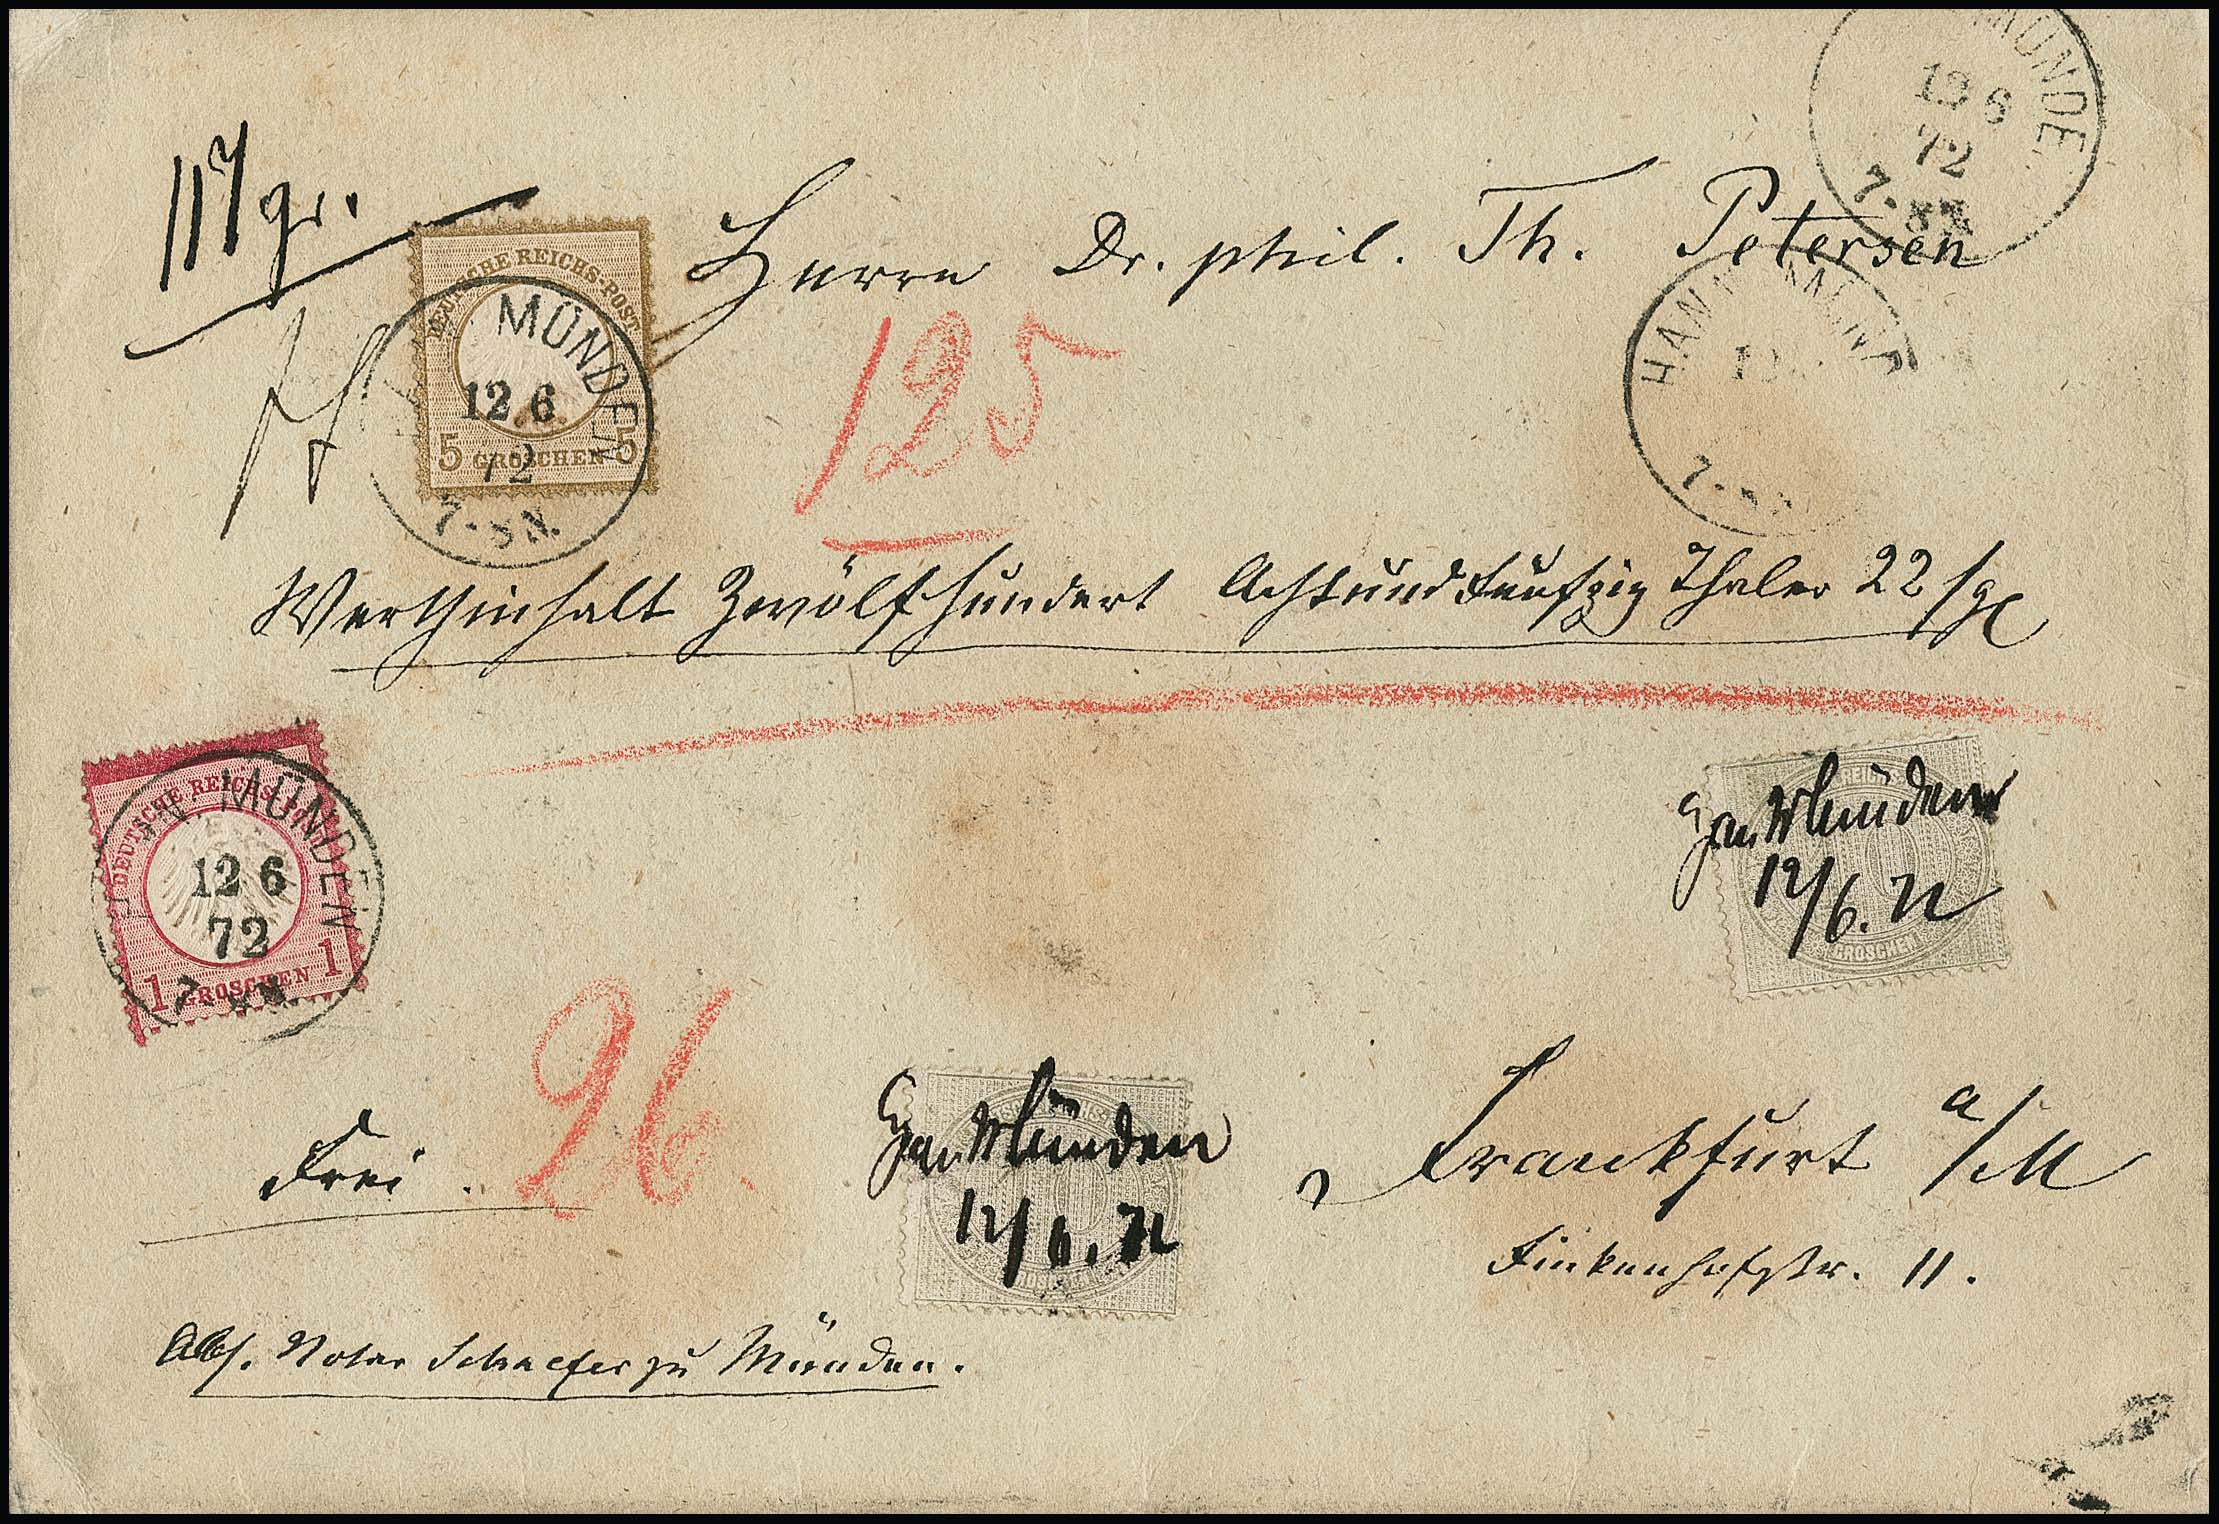 117 gr.
Herrn Dr. phil. Th. Petersen
MÜNDE
12 6
72
7-8N.
DEUTSCHE REICHS-POST
5 GROSCHEN 5
MÜNDEN
12 6
72
7-8N.
125
HANN. MÜND
7-8
Werthinhalt Zwölfhundert Achtundfünfzig Thaler 22 sgr
DEUTSCHE REICHS-POST
1 GROSCHEN 1
N. MÜNDEN
12 6
72
7-8N.
REICHS
GROSCHEN
Han. Münden
12/6. 72
Frei.
26
REICHS
GROSCHEN
Han. Münden
12/6. 72
Frankfurt a/M
Finkenhofstr. 11.
Abs. Notar Schaefer zu Münden.